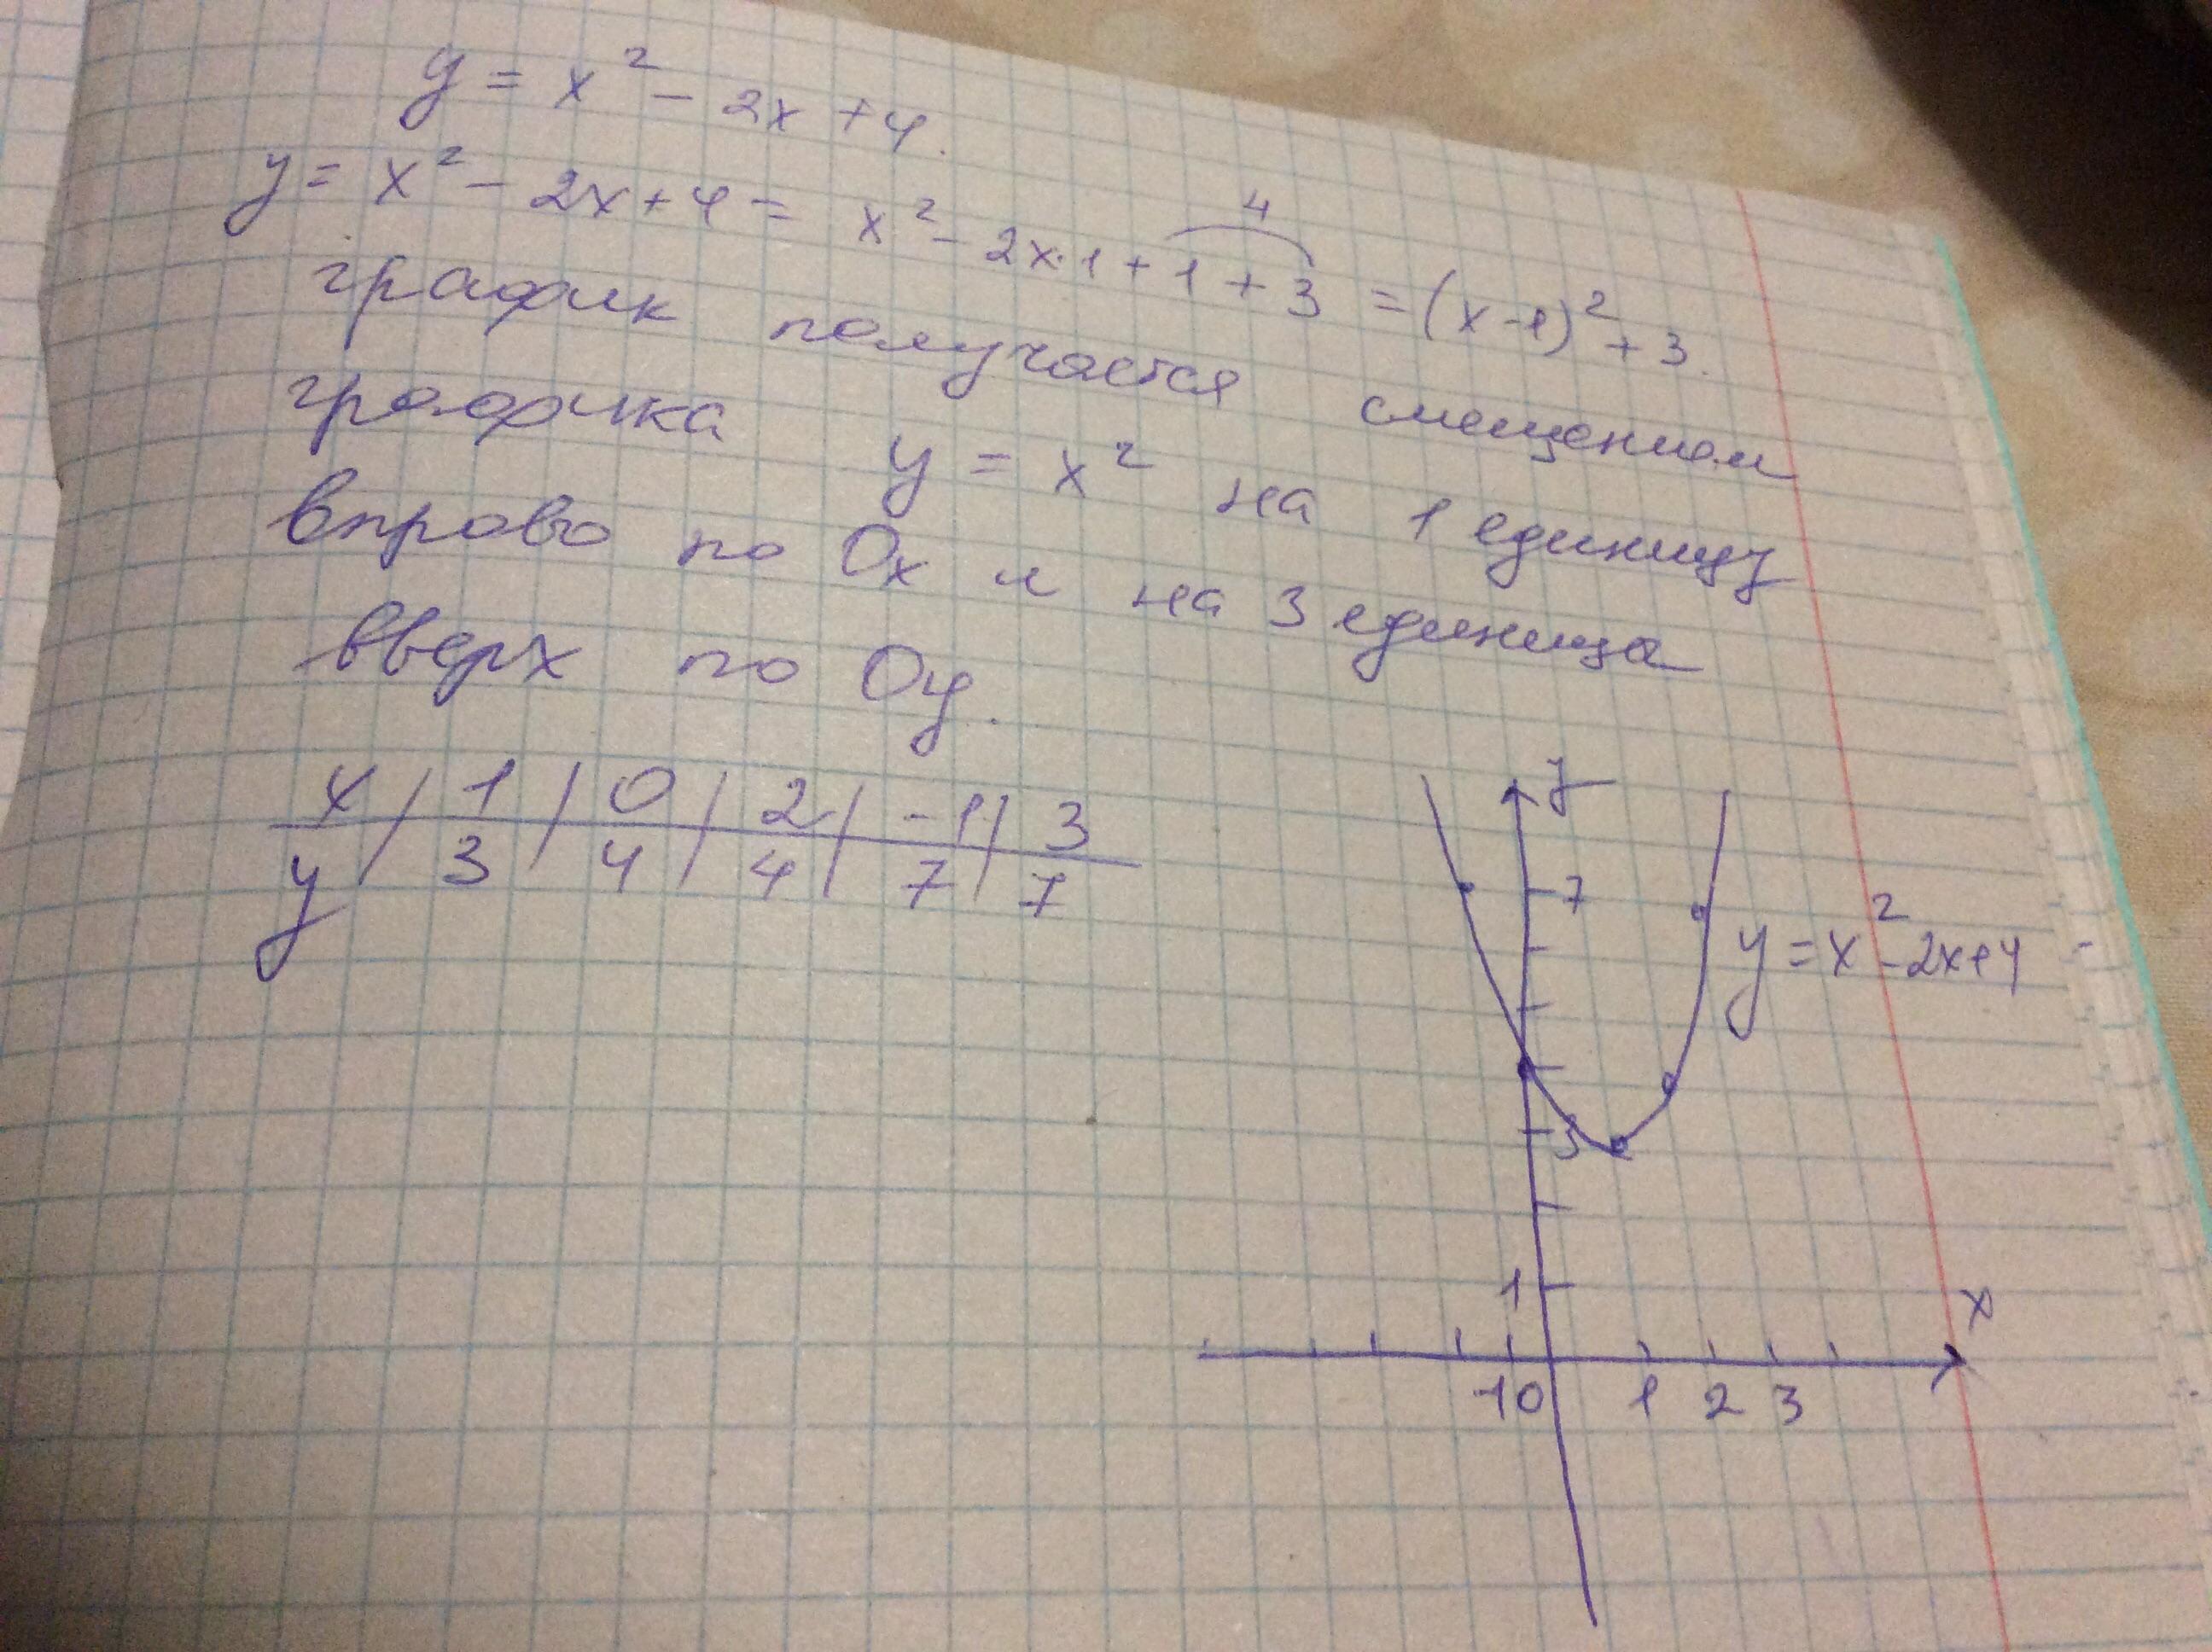 y = x² - 2x + 4.
y = x² - 2x + 4 = x² - 2x·1 + 1 + 3 = (x-1)² + 3.
4
график получается смещением
графика y = x² на 1 единицу
вправо по Ox и на 3 единицы
вверх по Oy.
x | 1 | 0 | 2 | -1 | 3
y | 3 | 4 | 4 | 7 | 7
y
7
y = x² - 2x + 4
3
1
x
-1 0 1 2 3